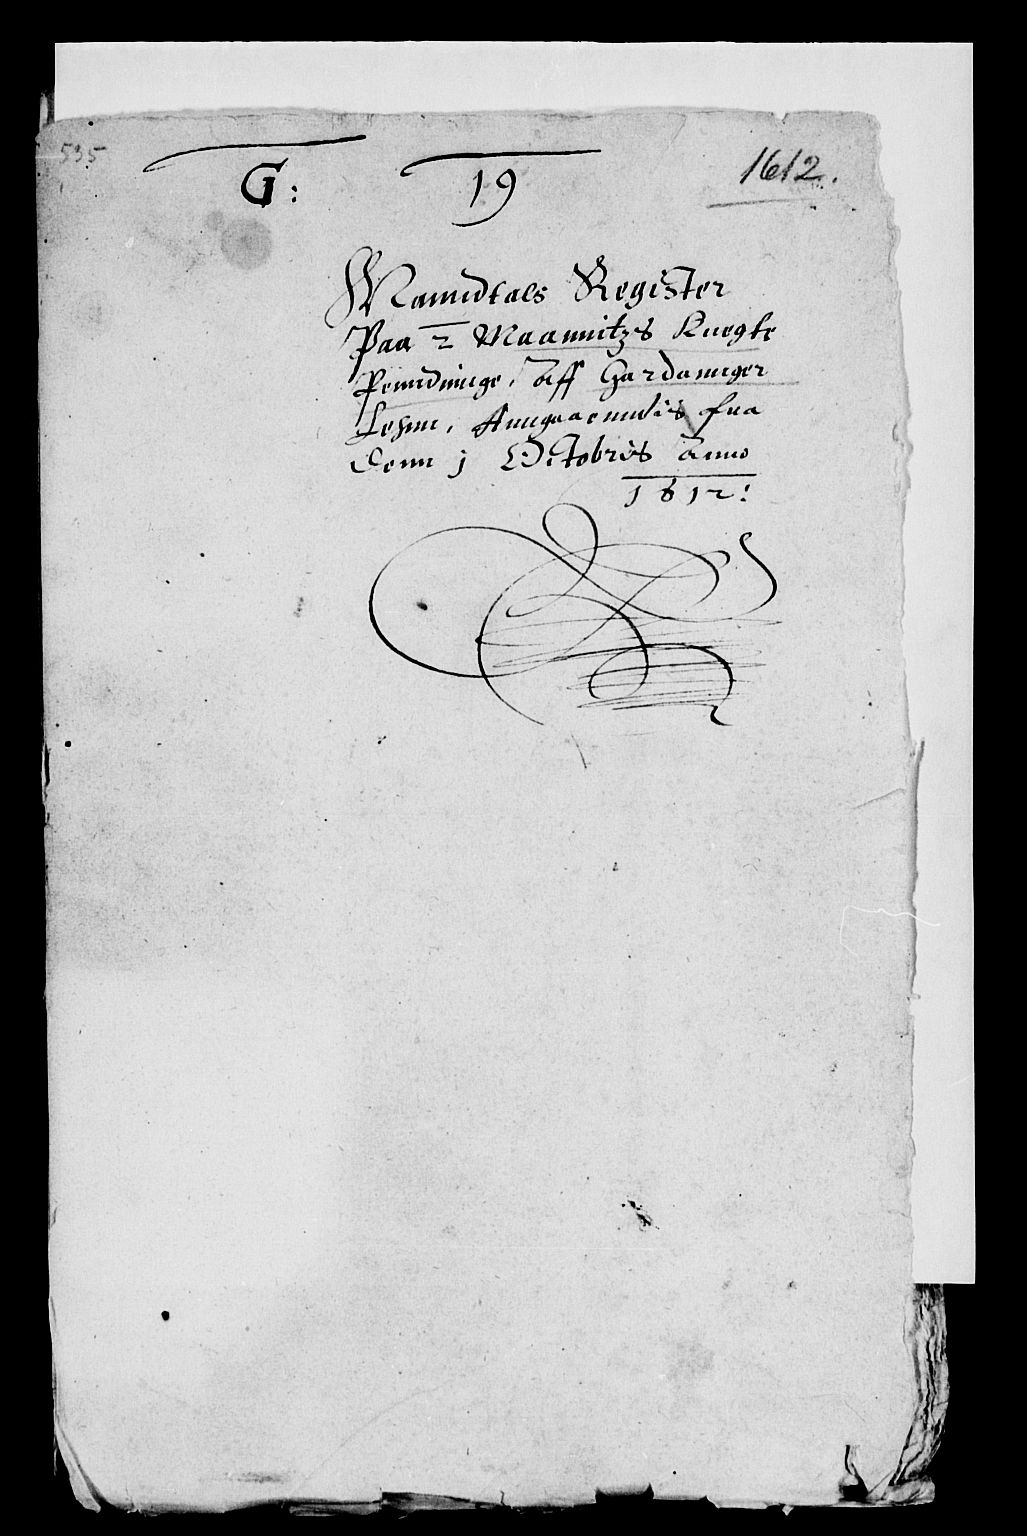 535
G: 19 1612.
Manndtals Register
Paa 2 Maannitzs Knegte
Penndinnge, Aff Hardannger
Lehnn, Anngaaenndis fra
Denn j Octobris Anno
1612: